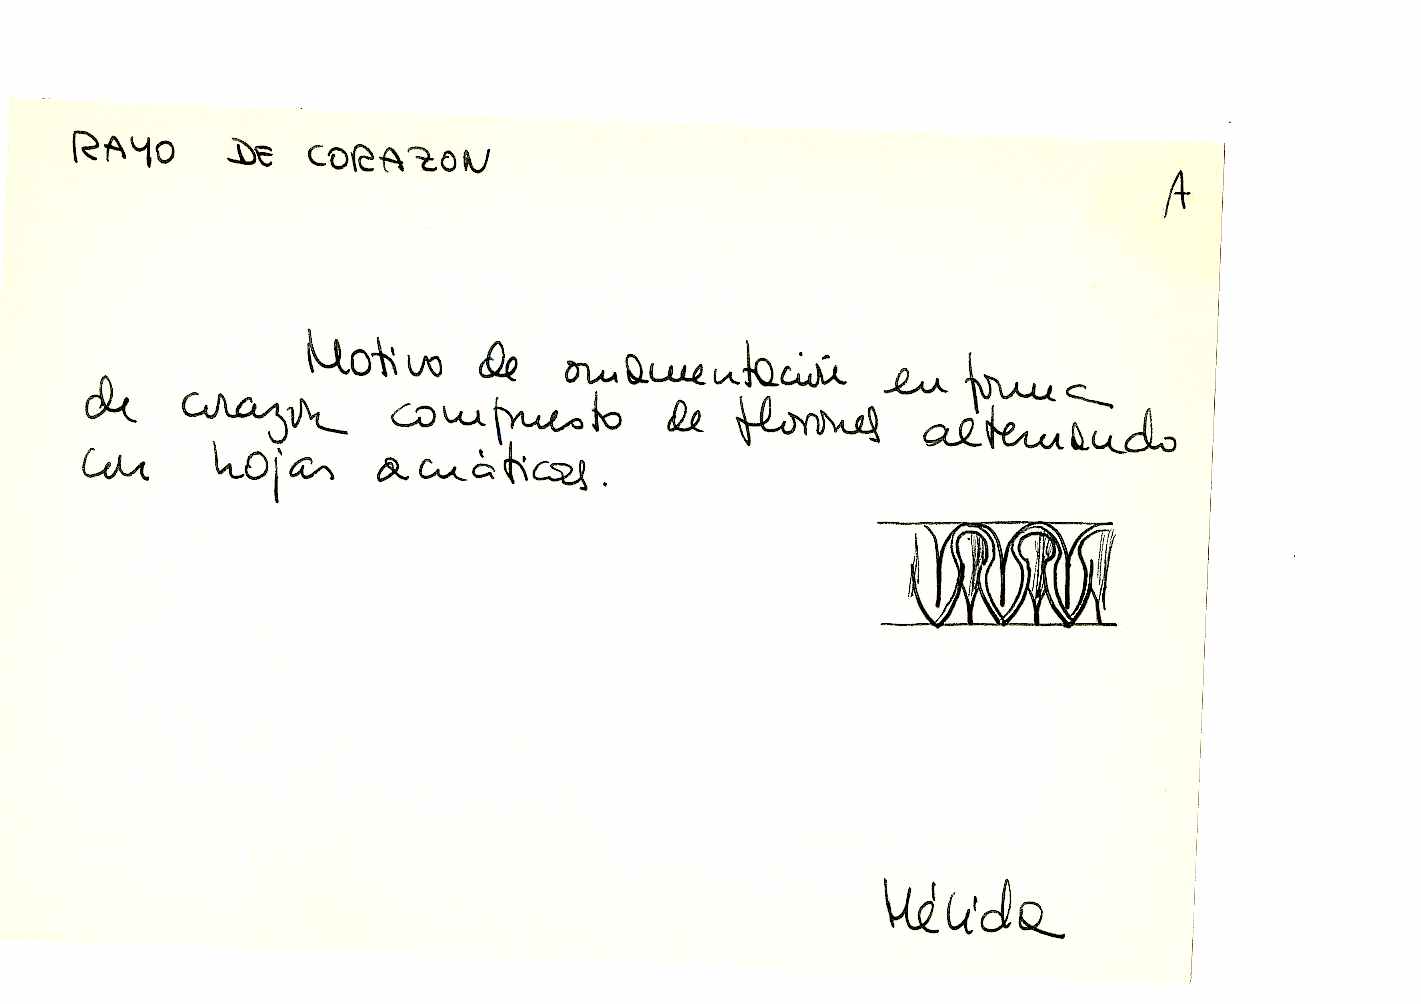 RAYO DE CORAZON
A
Motivo de ornamentación en forma
de corazón compuesto de florones alternando
con hojas acuáticas.
Mélida